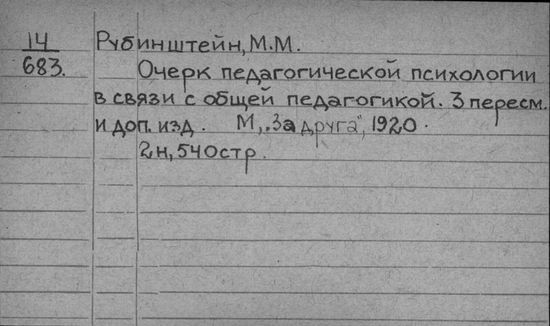 14
683.
Рубинштейн, М.М.
Очерк педагогической психологии
в связи с общей педагогикой. 3 пересм.
и доп. изд. М, „За друга", 1920.
2н, 540стр.